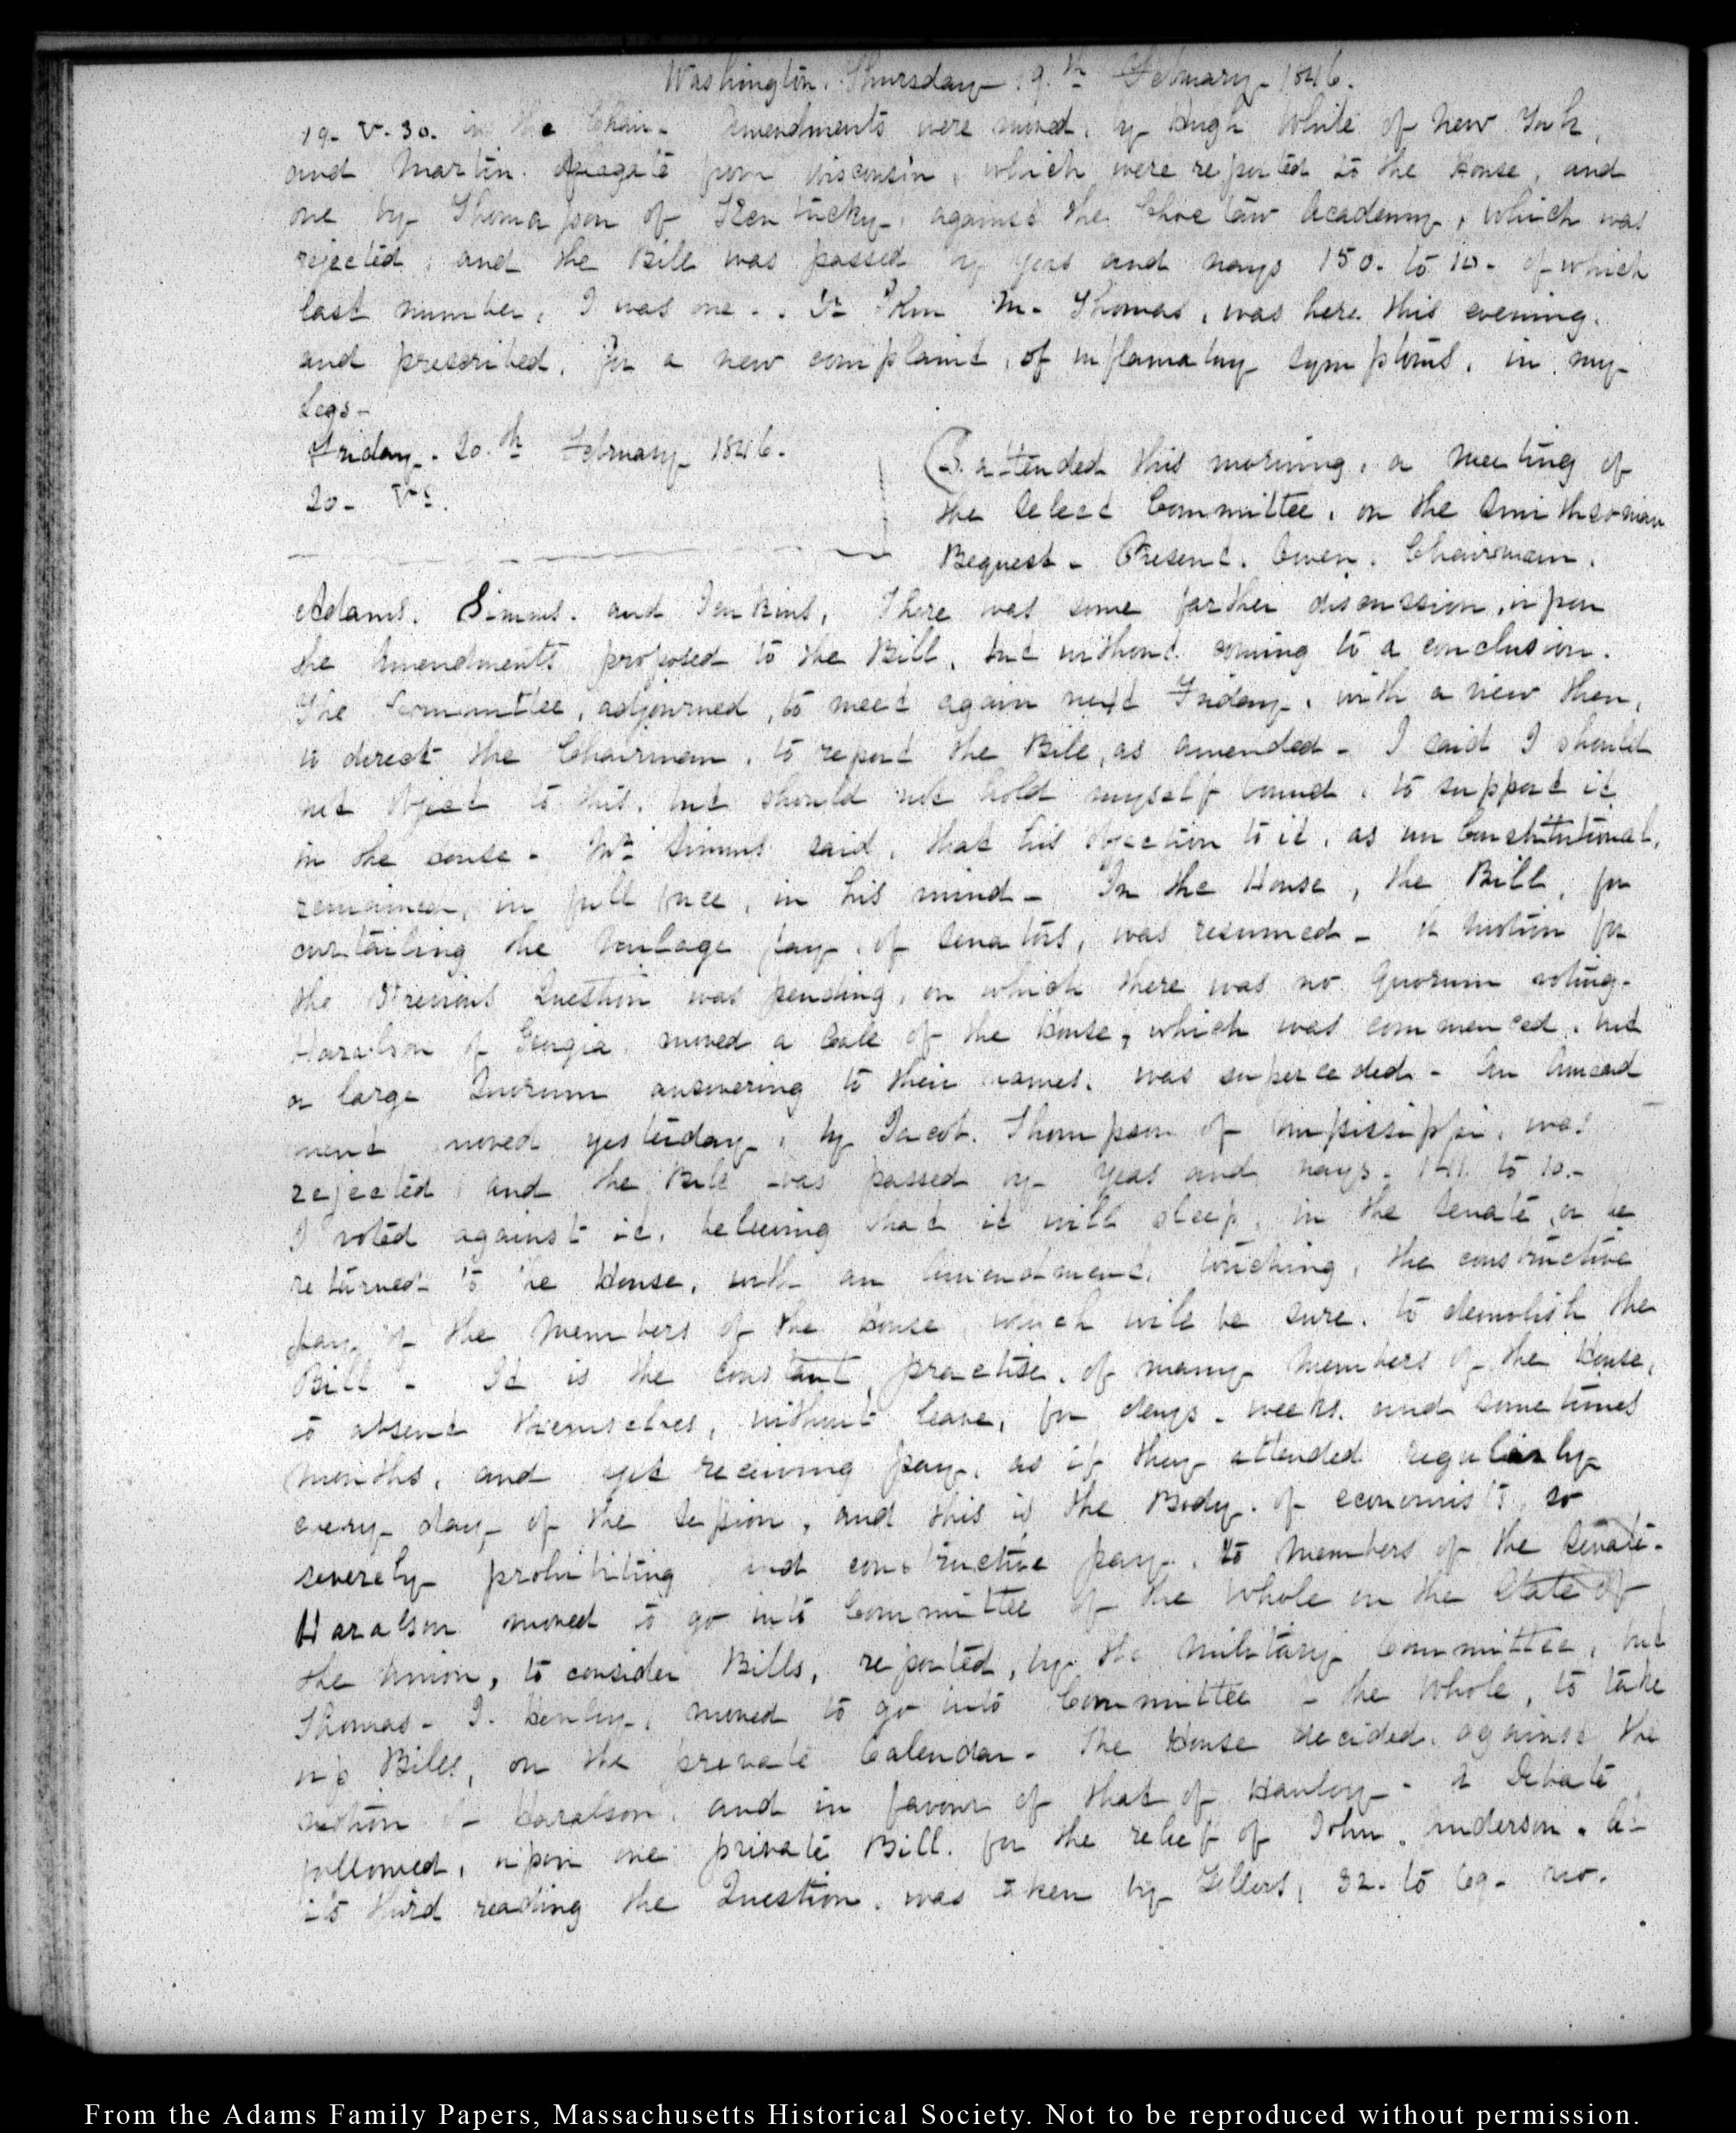 Washington. Thursday 19.th February 1846.
19. V.30. in the Chair. Amendments were moved, by Hugh White of New York,
and Martin delegate from Wisconsin, which were reported to the House, and
one by Thomasson of Kentucky, against the Choctaw Academy, which was
rejected, and the Bill was passed by yeas and nays 150. to 10. of which
last number, I was one. Dr John M. Thomas, was here this evening.
and prescribed, for a new complaint, of inflamatory symptoms, in my
Legs.
Friday. 20.th February 1846.
20. V
I attended this morning, a meeting of
the select Committee, on the Smithsonian
Bequest. Present. Owen. Chairman.
Adams. Simms. and Jenkins. There was some further discussion, upon
the Amendments proposed to the Bill, but without coming to a conclusion.
The Committee, adjourned, to meet again next Friday, with a view then,
to direct the Chairman, to report the Bill, as amended. I said I should
not object to this, but should not hold myself bound, to support it
in the House. Mr Simms said, that his objection to it, as unConstitutional,
remained, in full force, in his mind. In the House, the Bill, for
curtailing the mileage pay, of Senators, was resumed. A motion for
the Previous Question was pending, on which there was no Quorum voting.
Haralson of Georgia, moved a Call of the House, which was commenced, but
a large Quorum answering to their names, was superceded. An Amend
ment moved yesterday, by Jacob. Thompson of Mississippi, was
rejected, and the Bill was passed by Yeas and nays. 141. to 10.
I voted against it, believing that it will sleep, in the Senate, or be
returned to the House, with an Amendment, touching, the constructive
pay of the Members of the House, which will be sure, to demolish the
Bill. It is the constant practise, of many members of the House,
to absent themselves, without leave, for days, weeks, and sometimes
months, and yet receiving pay, as if they attended regularly
every day of the Session, and this is the Body. of economists, so
severely prohibiting constructive pay, to members of the Senate.
Haralson moved to go into Committee of the Whole on the State of
the Union, to consider Bills, reported, by the Military Committee, but
Thomas J. Henley, moved to go into Committee of the Whole, to take
up Bills, on the private Calendar. The House decided, against the
motion of Haralson, and in favour of that of Henley. A Debate
followed, upon one private Bill. for the relief of John Anderson. at
its third reading the Question, was taken by Tellers, 32. to 69. no.
From the Adams Family Papers, Massachusetts Historical Society. Not to be reproduced without permission.